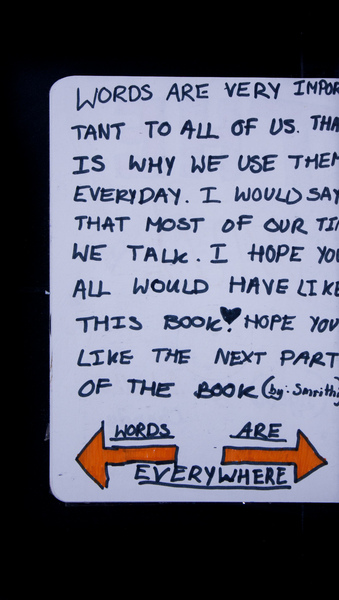 WORDS ARE VERY IMPOR
TANT TO ALL OF US. THA
IS WHY WE USE THEM
EVERYDAY. I WOULD SAY
THAT MOST OF OUR TI
WE TALK. I HOPE YOU
ALL WOULD HAVE LIKE
THIS BOOK! HOPE YOU
LIKE THE NEXT PART
OF THE BOOK (by: Smrithi)
WORDS ARE
EVERYWHERE